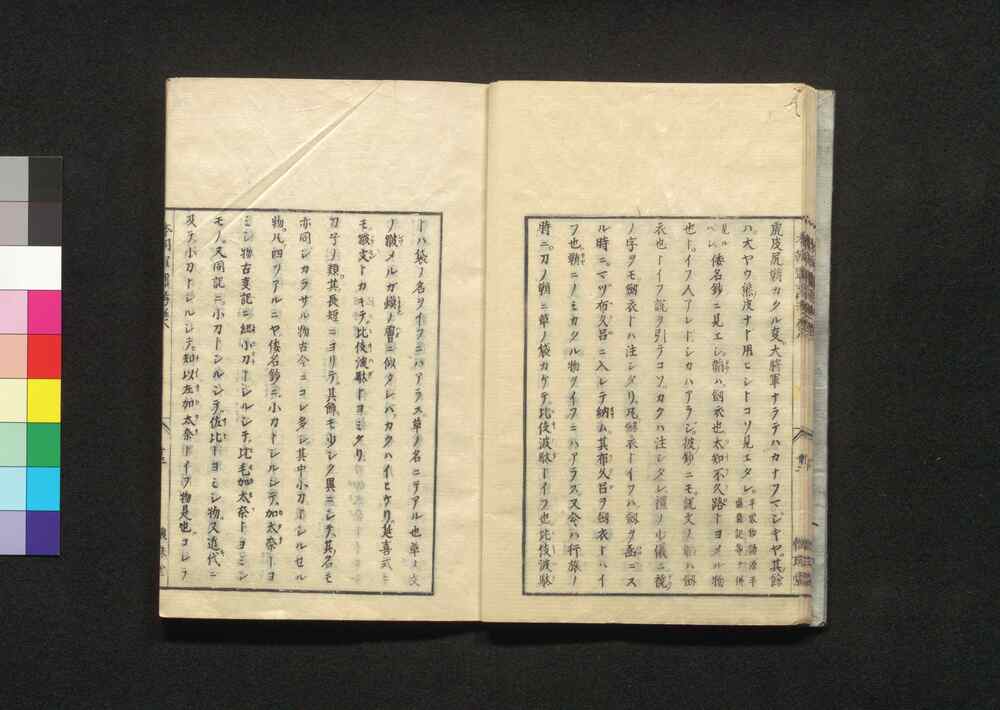 鹿皮尻鞘カクル叓大將軍ナラテハカナフマジキヤ其餘
ハ大ヤウ熊皮ナト用ヒシトコソ見エタレ平家物語源平盛衰記等ナ併
見ルベシ倭名鈔ニ見エシ韜ハ劔衣也太知不久路トヨメル物
也トイフ人アレトシカハアラジ彼鈔ニモ説文ノ韜ハ劔
衣也トイフ説ヲ引テコソカクハ注シタレ禮ノ少儀ニ
ノ字ヲモ劔衣トハ注シタリ凡劔衣トイフハ劔ヲ函ニス
ル時ニマヅ布久呂ニ入レテ納ム其布久呂ヲ劔衣トハイ
フ也鞘ニノミカクル物ヲイフニハアラス又今ハ行旅ノ
時ニ刀ノ鞘ニ革ノ袋カケテ比伎波駄トイフ也比伎波駄
トハ袋ノ名ヲイフニハアラス革ノ名ニテアル也革ノ文
ノ皺メルガ蟇ノ膚ニ似タレバカクハイヒケリ延喜式ニ
モ皺文トカキテ比伎波駄トヨミタリ
刀子ノ類其長短ニヨリテ其飾モ少シク異ニシテ其名モ
亦同シカラサル物古今ニコレ多シ其中小刀ヲシルセル
物凡四ツアルニヤ倭名鈔ニ小刀トシルシテ加太奈トヨ
ミシ物古叓記ニ紐小刀トシルシテ比毛加太奈トヨミシ
モノ又同記ニ小刀トシルシテ佐比トヨミシ物又近代ニ
及テ小刀トシルシテ知以左加太奈トイフ物是也コレラ